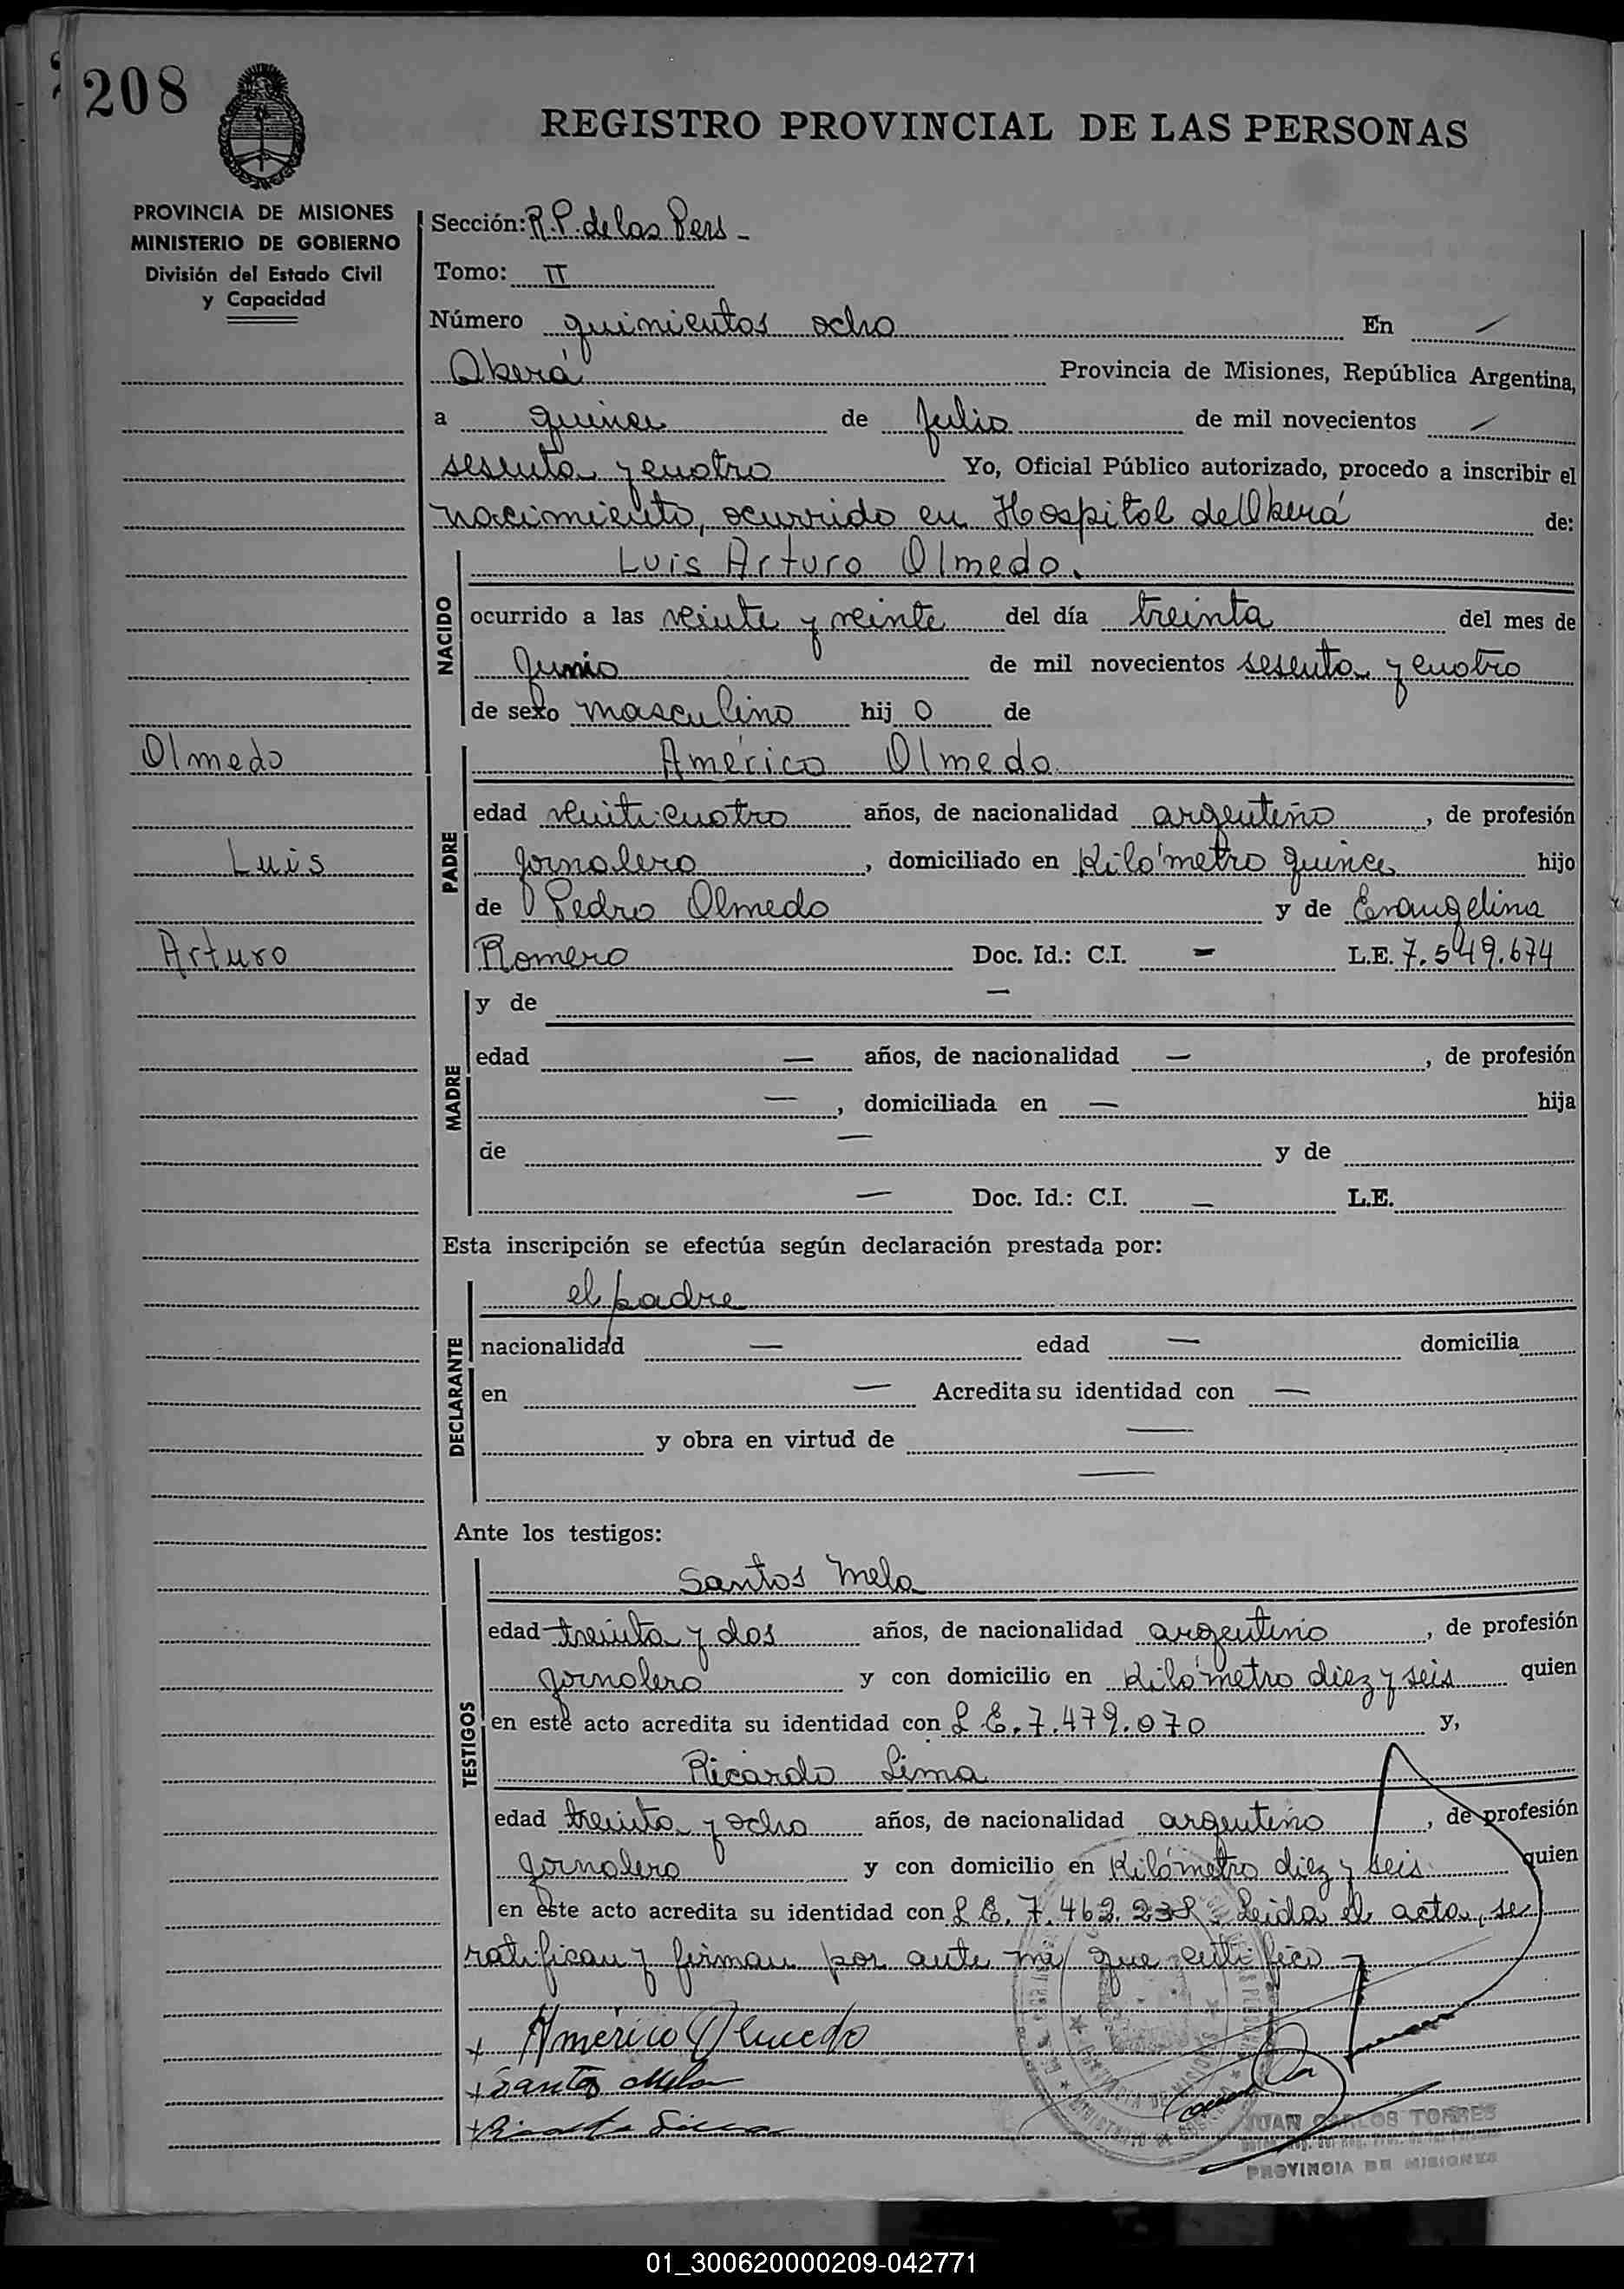 208
REGISTRO PROVINCIAL DE LAS PERSONAS
PROVINCIA DE MISIONES
MINISTERIO DE GOBIERNO
División del Estado Civil
y Capacidad
Sección: R.P. de las Pers -
Tomo: II
Número quinientos ocho En /
Oberá Provincia de Misiones, República Argentina,
a quince de Julio de mil novecientos /
sesenta y cuatro Yo, Oficial Público autorizado, procedo a inscribir el
nacimiento, ocurrido en Hospital de Oberá de:
NACIDO
Luis Arturo Olmedo.
ocurrido a las veinte y veinte del día treinta del mes de
Junio de mil novecientos sesenta y cuatro
de sexo masculino hij o de
Olmedo
Luis
Arturo
PADRE
Américo Olmedo
edad veinticuatro años, de nacionalidad argentino, de profesión
jornalero, domiciliado en Kilómetro quince hijo
de Pedro Olmedo y de Evangelina
Romero Doc. Id.: C.I. - L.E. 7.549.674
MADRE
y de —
edad — años, de nacionalidad —, de profesión
—, domiciliada en — hija
de — y de
— Doc. Id.: C.I. — L.E.
Esta inscripción se efectúa según declaración prestada por:
DECLARANTE
el padre
nacionalidad — edad — domicilia
en — Acredita su identidad con —
y obra en virtud de —
—
Ante los testigos:
TESTIGOS
Santos Melo
edad treinta y dos años, de nacionalidad argentino, de profesión
jornalero y con domicilio en Kilómetro diez y seis quien
en este acto acredita su identidad con L.E. 7.479.070 y,
Ricardo Lima
edad treinta y ocho años, de nacionalidad argentino, de profesión
jornalero y con domicilio en Kilómetro diez y seis quien
en este acto acredita su identidad con L.E. Leida el acta, se
ratifican y firman por ante mi que certifico
+ Américo Olmedo
+ Santos Melo
+ Ricardo Lima
JUAN CARLOS TORRES
PROVINCIA DE MISIONES
01_300620000209-042771